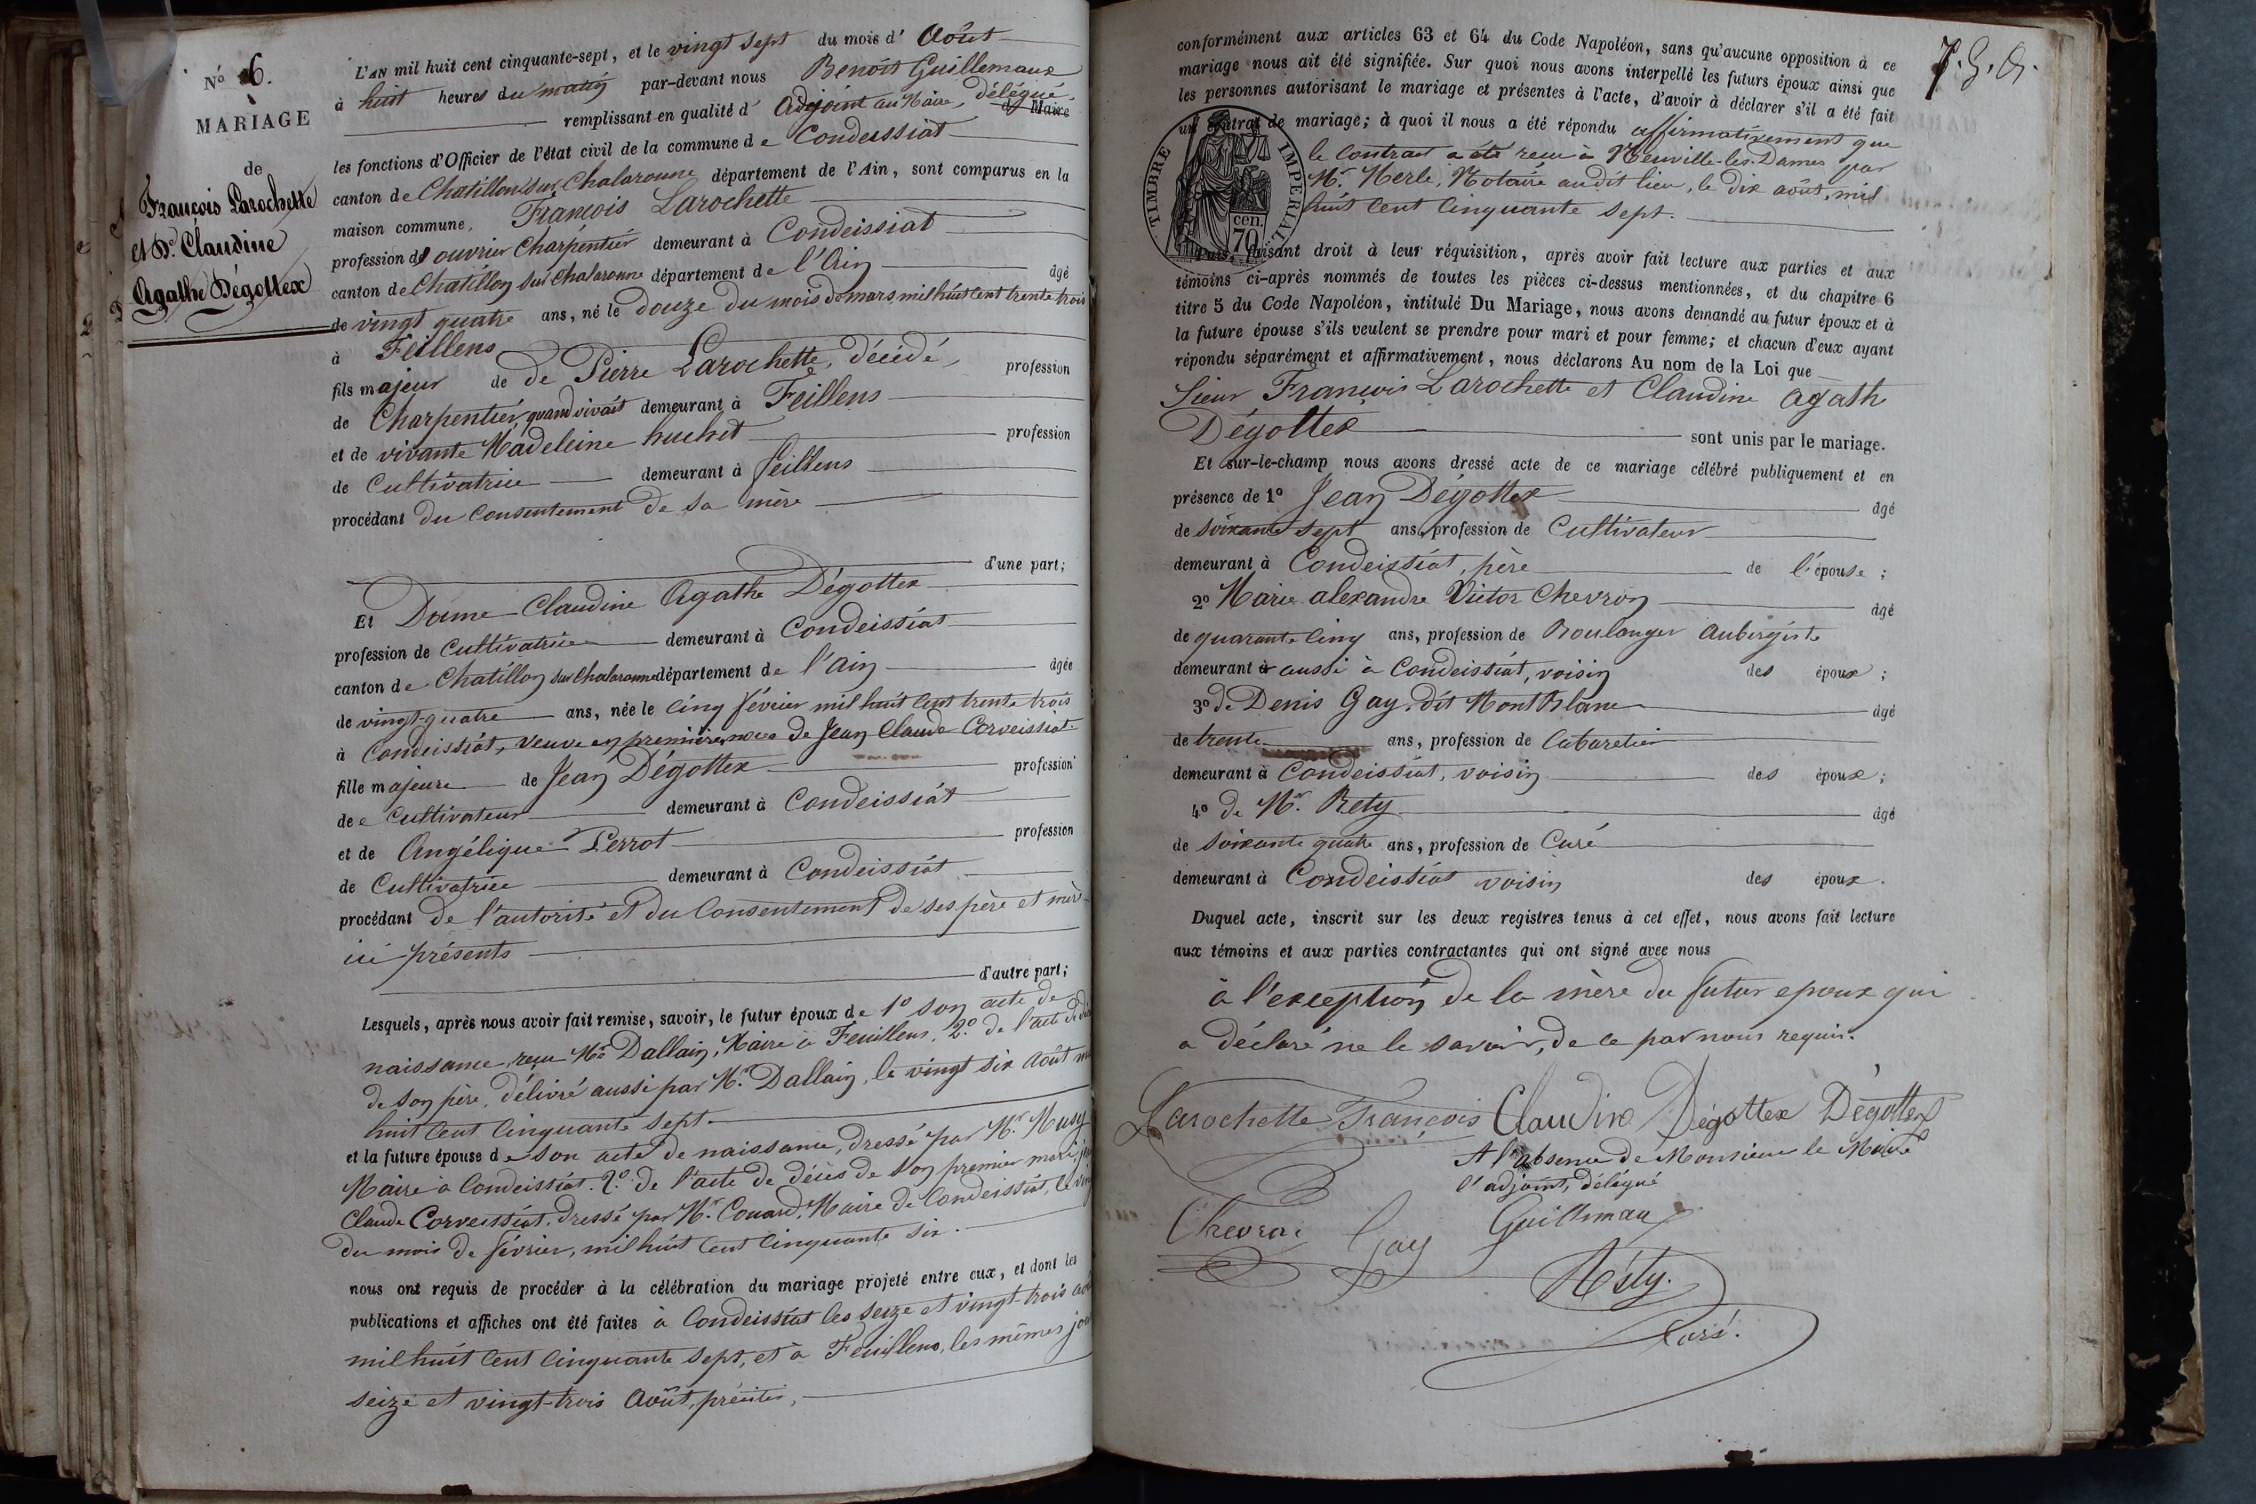 N.º 6.
MARIAGE
de
François Larochette
et De. Claudine
Agathe Dégottex
L'AN mil huit cent cinquante-sept, et le vingt sept du mois d' Août
à huit heures du matin par-devant nous Benoît Guillemaux
remplissant en qualité d' Adjoint au Maire, délégué
d Maire
les fonctions d'Officier de l'état civil de la commune de Condeissiat
canton de Chatillon sur Chalaronne département de l'Ain, sont comparus en la
maison commune, François Larochette
profession d' ouvrier Charpentier demeurant à Condeissiat
canton de Chatillon sur Chalaronne département de l'Ain âgé
de vingt quatre ans, né le douze du mois de mars mil huit cent trente trois
à Feillens
fils majeur de de Pierre Larochette, décédé, profession
de Charpentier, quand vivait demeurant à Feillens
et de vivante Madeleine huchet profession
de Cultivatrice demeurant à feillens
procédant du consentement de sa mère
d'une part;
Et Dame Claudine Agathe Dégottex
profession de Cultivatrice demeurant à Condeissiat
canton de Chatillon sur Chalaronne département de l'ain âgée
de vingt-quatre ans, née le cinq février mil huit cent trente trois
à Condeissiat, veuve en première noce de Jean Claude Corveissiat
fille majeure de Jean Dégottex profession
de Cultivateur demeurant à Condeissiat
et de Angélique Perrot profession
de Cultivatrice demeurant à Condeissiat
procédant de l'autorité et du Consentement de ses père et mère
ici présents
d'autre part;
Lesquels, après nous avoir fait remise, savoir, le futur époux de 1º son acte de
naissance, reçu Mr Dallain, Maire à Feuillens, 2º de l'acte de
de son père, délivré aussi par Mr. Dallain, le vingt six août
huit cent cinquante sept.
et la future épouse de son acte de naissance, dressé par Mr. Musy
Maire à Condeissiat. 2º. de l'acte de décès de son premier mari,
Claude Corveissiat, dressé par Mr. Couard, Maire de Condeissiat, le
du mois de février, mil huit cent cinquante six.
nous ont requis de procéder à la célébration du mariage projeté entre eux, et dont les
publications et affiches ont été faites à Condeissiat les seize et vingt-trois
mil huit cent cinquante sept, et à Feuillens, les mêmes
seize et vingt-trois Août, précités,
conformément aux articles 63 et 64 du Code Napoléon, sans qu'aucune opposition à ce
mariage nous ait été signifiée. Sur quoi nous avons interpellé les futurs époux ainsi que
les personnes autorisant le mariage et présentes à l'acte, d'avoir à déclarer s'il a été fait
un contrat de mariage; à quoi il nous a été répondu affirmativement que
le contrat a été reçu à Neuville-les-Dames par
Mr. Merle, Notaire au dit lieu, le dix août, mil
huit cent cinquante sept.
TIMBRE IMPERIAL
cen.
70
Puis, faisant droit à leur réquisition, après avoir fait lecture aux parties et aux
témoins ci-après nommés de toutes les pièces ci-dessus mentionnées, et du chapitre 6
titre 5 du Code Napoléon, intitulé Du Mariage, nous avons demandé au futur époux et à
la future épouse s'ils veulent se prendre pour mari et pour femme; et chacun d'eux ayant
répondu séparément et affirmativement, nous déclarons Au nom de la Loi que
Sieur François Larochette et Claudine agath
Dégottex sont unis par le mariage.
Et sur-le-champ nous avons dressé acte de ce mariage célébré publiquement et en
présence de 1º Jean Dégottex âgé
de soixante sept ans, profession de Cultivateur
demeurant à Condeissiat, père de l'épouse;
2º Marie alexandre Victor Chevron âgé
de quarante cinq ans, profession de Boulanger Aubergiste
demeurant à aussi à Condeissiat, voisin des époux;
3º de Denis Gay, dit Mont Blanc âgé
de trente ans, profession de Cabaretier
demeurant à Condeissiat, voisin des époux;
4º de Mr. Rety âgé
de soixante quatre ans, profession de Curé
demeurant à Condeissiat voisin des époux.
Duquel acte, inscrit sur les deux registres tenus à cet effet, nous avons fait lecture
aux témoins et aux parties contractantes qui ont signé avec nous
à l'exception de la mère du futur epoux qui
a déclaré ne le savoir, de ce par nous requis.
Larochette François Claudine Dégottex Dégottex
A l'absence de Monsieur le Maire
l'adjoint, délégué
Chevron Gay Guillemau
Réty.
Curé.